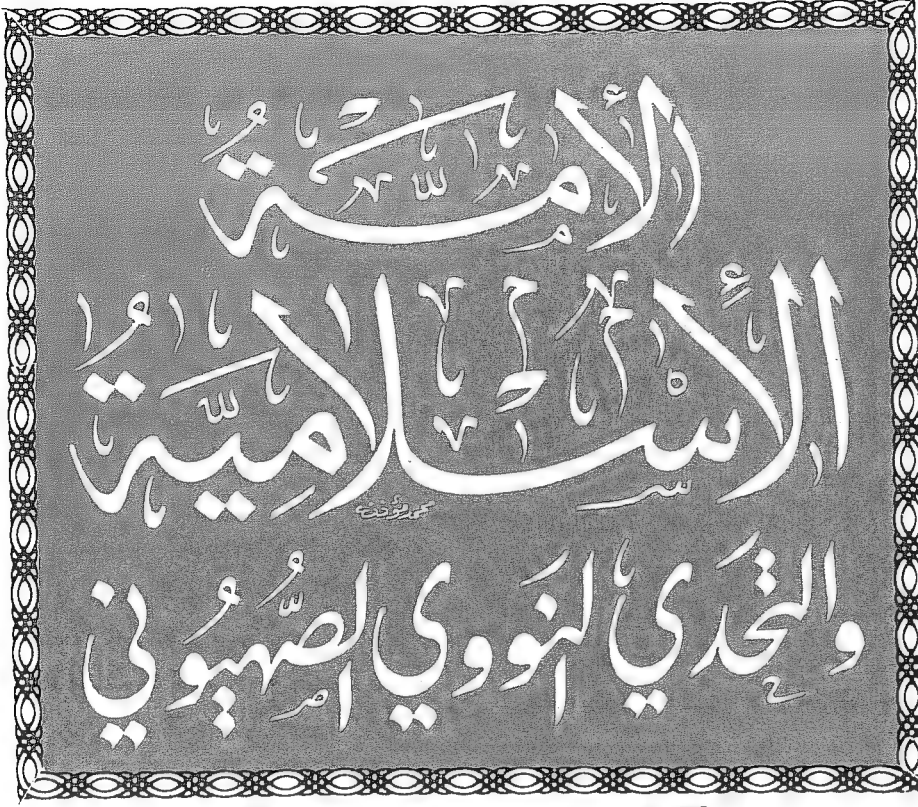 الأمةُ
الأسْلامِيّةُ
والتحَدي النَووي الصُّهيُوني